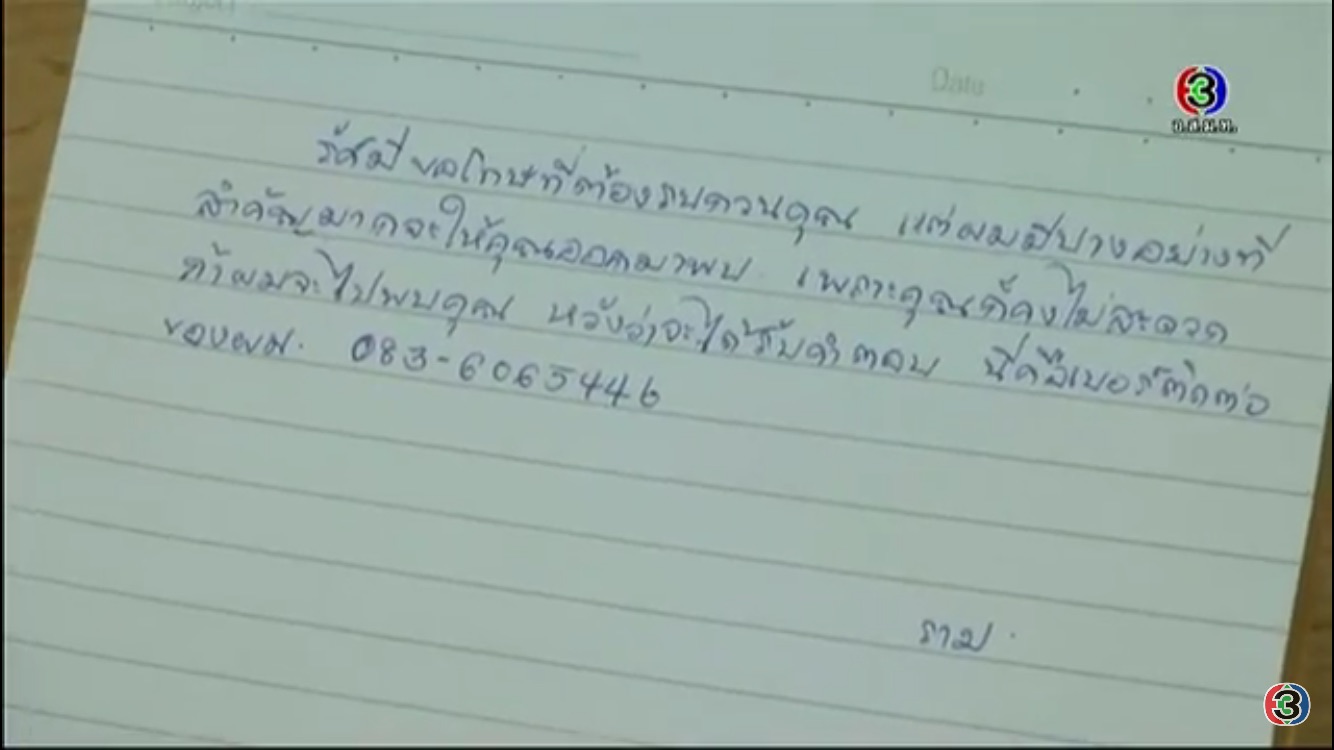 Project
Date
3
อ.ส.ม.ท.
รัศมี ขอโทษที่ต้องรบกวนคุณ แต่ผมมีบางอย่างที่
สำคัญมากจะให้คุณออกมาพบ เพราะคุณก็คงไม่สะดวก
ถ้าผมจะไปพบคุณ หวังว่าจะได้รับคำตอบ นี่คือเบอร์ติดต่อ
ของผม. 083-6065446
ราม.
3